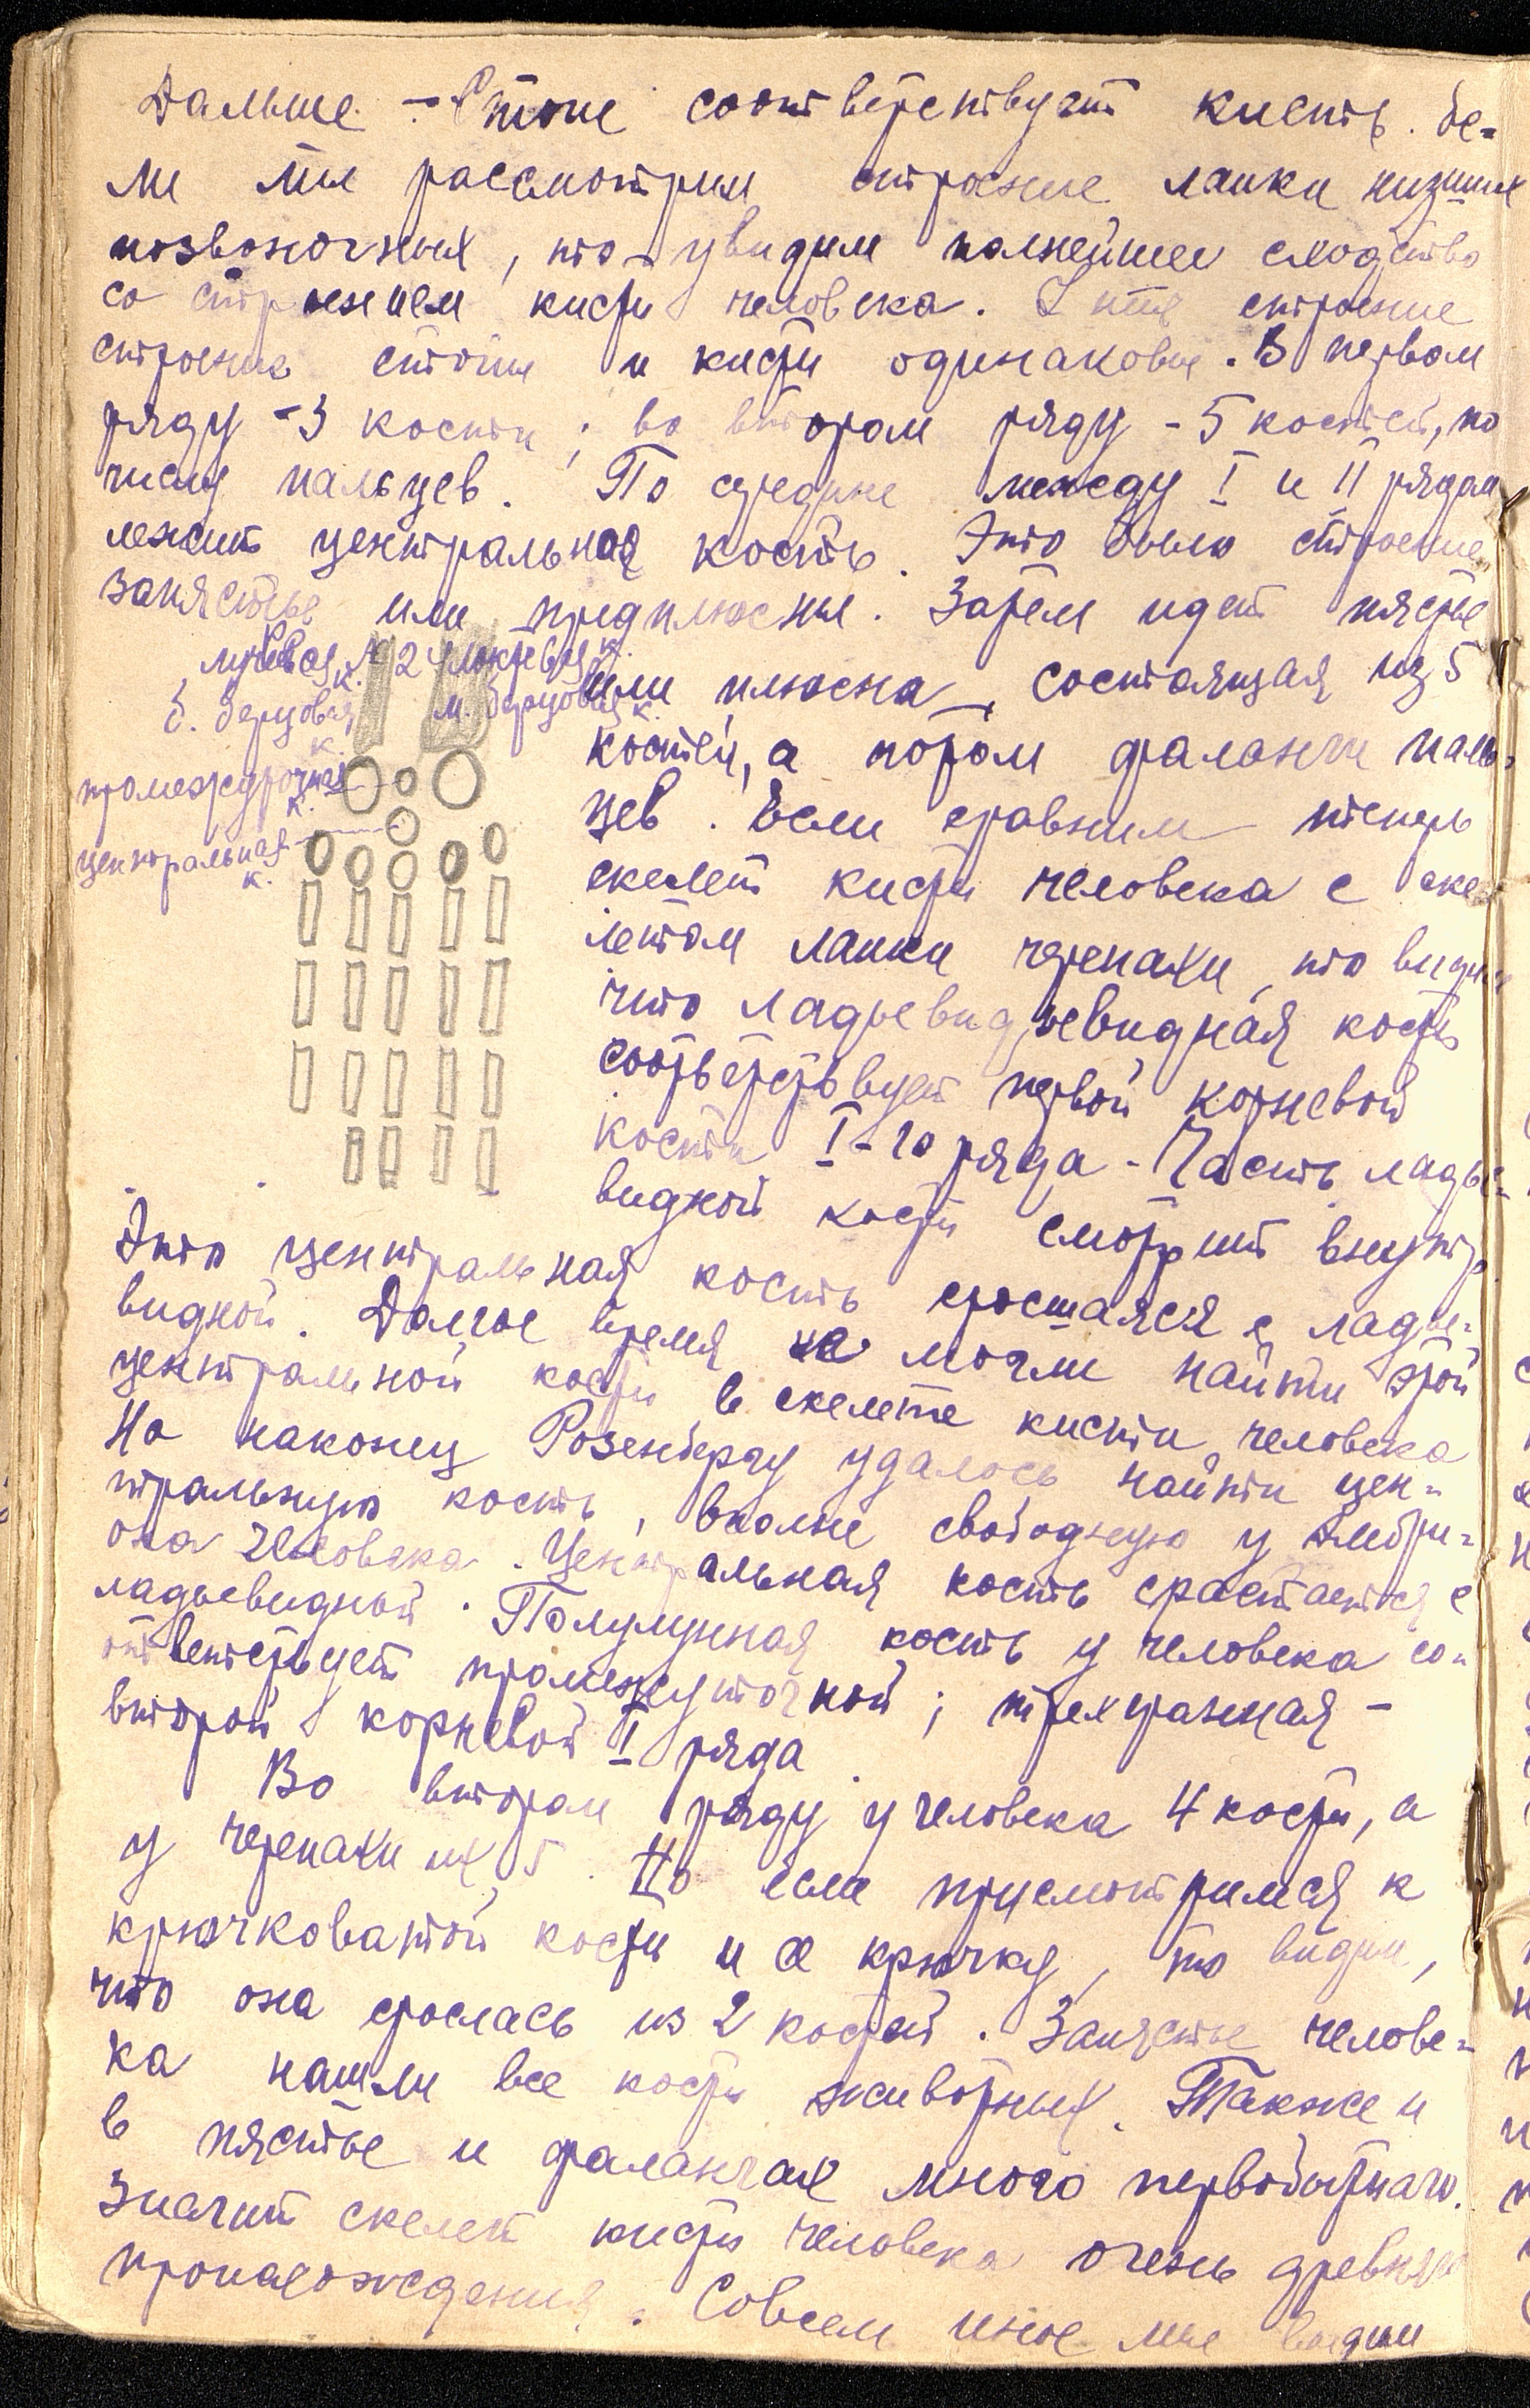 Дальше - Стопе соответствует кисть. Ес-
ли мы рассмотрим строение лапки низших
позвоночных, то увидим полнейшее сходство
со строением кисти человека. строение
строение стопы и кисти одинаковы. В первом
ряду - 3 кости; во втором ряду - 5 костей, по
числу пальцев. По средине между I и II рядом
лежит центральная кость. Это было строение
запястье или предплюсны. Затем идет пястье
лучевая к. 2 локтевая к.
б. берцовая к. м. берцовая к.
промежуточная к.
центральная к.
или плюсна, состоящая из 5
костей, а потом фаланги паль-
цев. Если сравним теперь
скелет кисти человека с ске-
летом лапки черепахи, то видим
что ладьевид,невидная кость
соответствует первой корневой
кости I-го ряда - Часть ладье-
видной кости смотрит внутрь.
Это центральная кость сростаяся с ладье-
видной. Долгое время не могли найти этой
центральной кости в скелете кисти человека
Но наконец Розенбергу удалось найти цен-
тральную кость, вполне свободную у эмбри-
она человека. Центральная кость срастается с
ладьевидной. Полулунная кость у человека со-
ответствует промежуточной; трехгранная -
второй корневой I ряда.
Во втором ряду у человека 4 кости, а
у черепахи их 5. Но если присмотримся к
крючковатой кости и ее крючку, то видим,
что она срослась из 2 костей. Запястье челове-
ка нашли все кости животных. Также и
в пястье и фалангах много первобытного.
Значит скелет кисти человека очень древняго
происхождения. Совсем иное мы видим